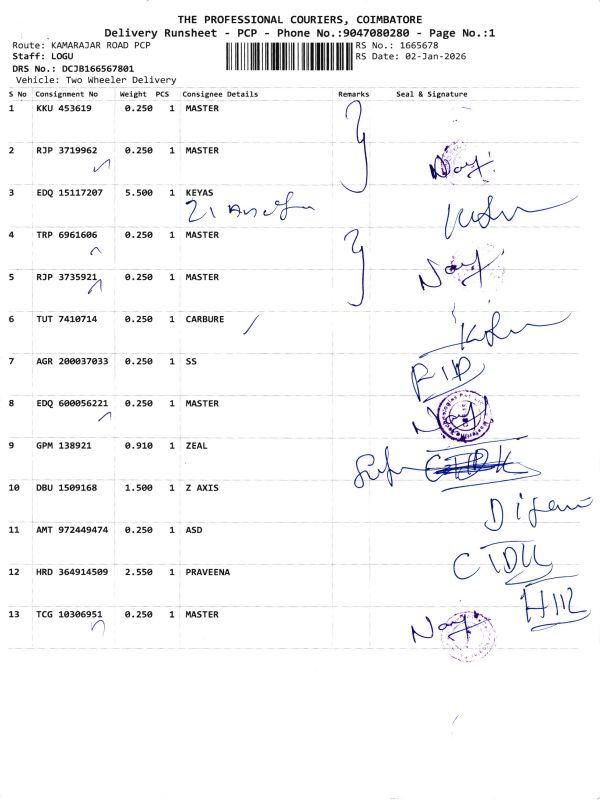 THE PROFESSIONAL COURIERS, COIMBATORE
Delivery Runsheet - PCP - Phone No.:9047080280 - Page No.:1
Route: KAMARAJAR ROAD PCP
Staff: LOGU
DRS No.: DCJB166567801
Vehicle: Two Wheeler Delivery
RS No.: 1665678
RS Date: 02-Jan-2026
S No Consignment No Weight PCS Consignee Details Remarks Seal & Signature
1 KKU 453619 0.250 1 MASTER
2 RJP 3719962 0.250 1 MASTER
3 EDQ 15117207 5.500 1 KEYAS
4 TRP 6961606 0.250 1 MASTER
5 RJP 3735921 0.250 1 MASTER
6 TUT 7410714 0.250 1 CARBURE
7 AGR 200037033 0.250 1 SS
8 EDQ 600056221 0.250 1 MASTER
9 GPM 138921 0.910 1 ZEAL
10 DBU 1509168 1.500 1 Z AXIS
11 AMT 972449474 0.250 1 ASD
12 HRD 364914509 2.550 1 PRAVEENA
13 TCG 10306951 0.250 1 MASTER